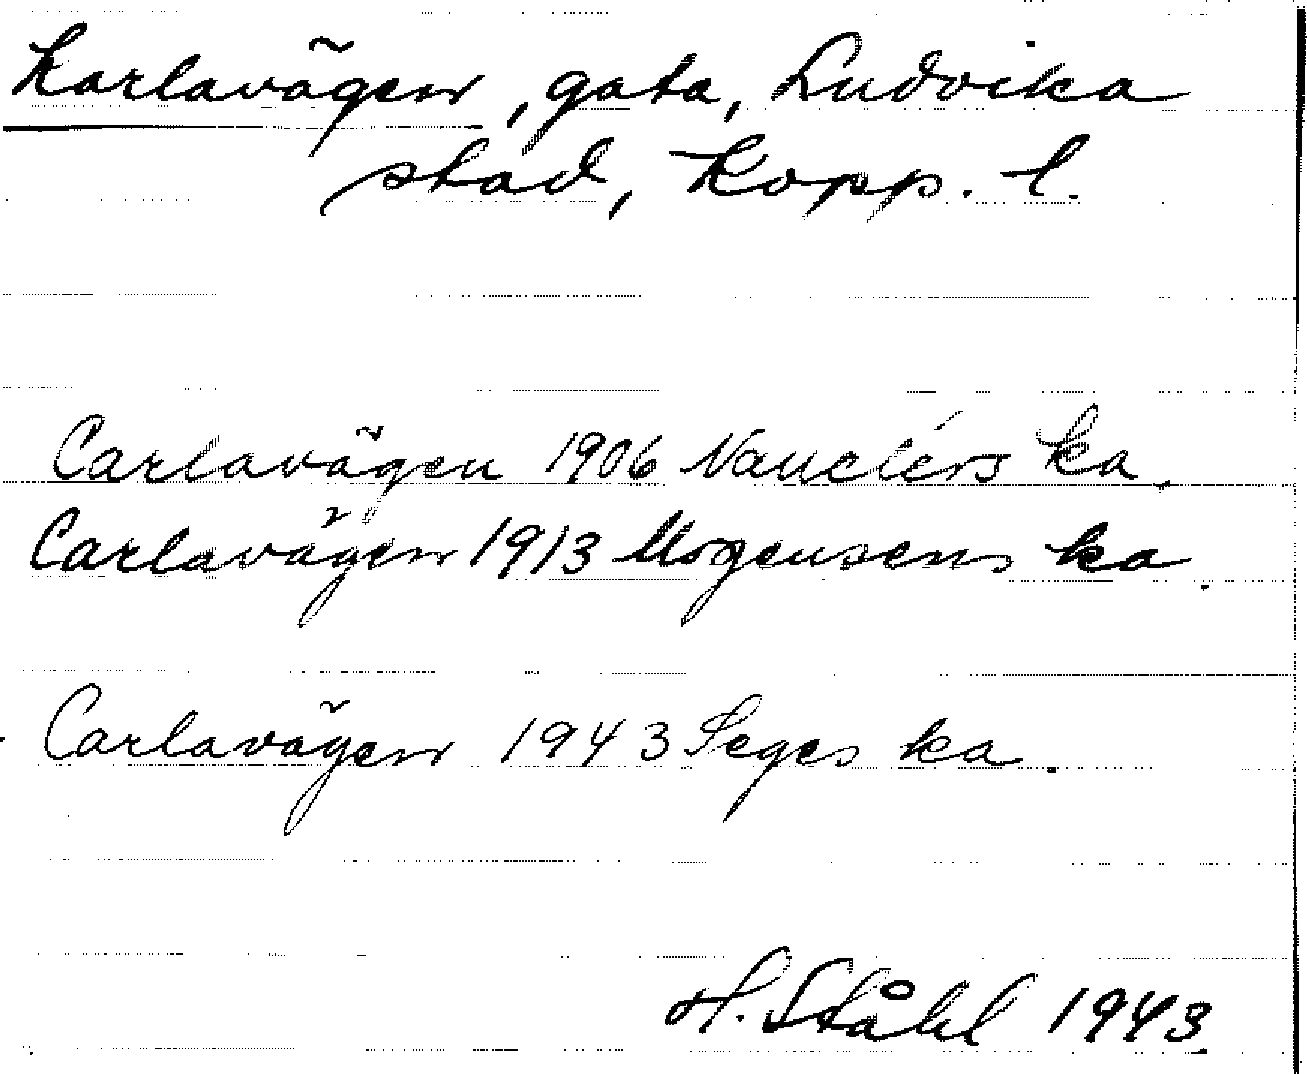 Karlavägen, gata, Ludvika
stad, Kopp. l.
Carlavägen 1906 Nauclérs ka.
Carlavägen 1913 Mogensens ka.
Carlavägen 1943 Seges ka.
H. Ståhl 1943.